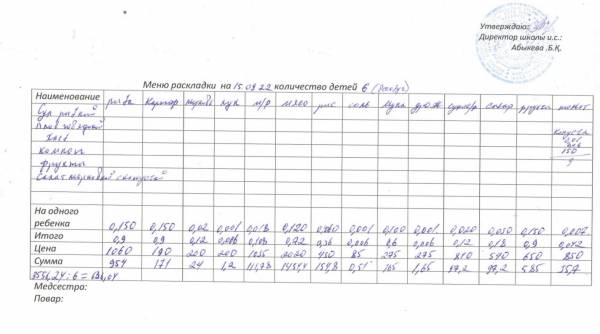 Утверждаю:
Директор школы и.с.:
Абыкева .Б.Қ.
Меню раскладки на 15.09.22 количество детей 6
Наименование рыба картоф морковь лук м/р мясо рис соль мука сахар фрукты
Суп рыбный
Плов
хлеб капуста
компот 150
фрукты 9
На одного
ребенка 0,150 0,150 0,02 0,001 0,018 0,120 0,060 0,001 0,100 0,001 0,020 0,030 0,150 0,007
Итого 0,9 0,9 0,12 0,006 0,108 0,72 0,36 0,006 0,6 0,006 0,12 0,18 0,9 0,042
Цена 1060 190 200 200 1035 2020 430 85 275 275 810 540 650 850
Сумма 954 171 24 1,2 111,78 1454,4 154,8 0,51 165 1,65 97,2 97,2 585 35,7
Медсестра:
Повар: